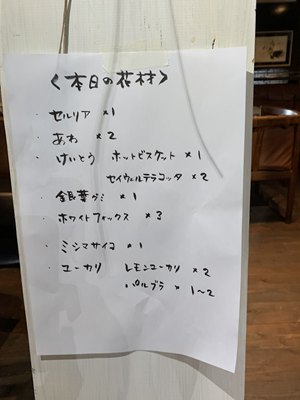 〈本日の花材〉
・セルリア ×1
・あわ ×2
・けいとう ホットビスケット ×1
セイヴェルテラコッタ ×2
・銀葉グミ ×1
・ホワイトフォックス ×3
・ミシマサイコ ×1
・ユーカリ レモンユーカリ ×2
パルブラ ×1〜2